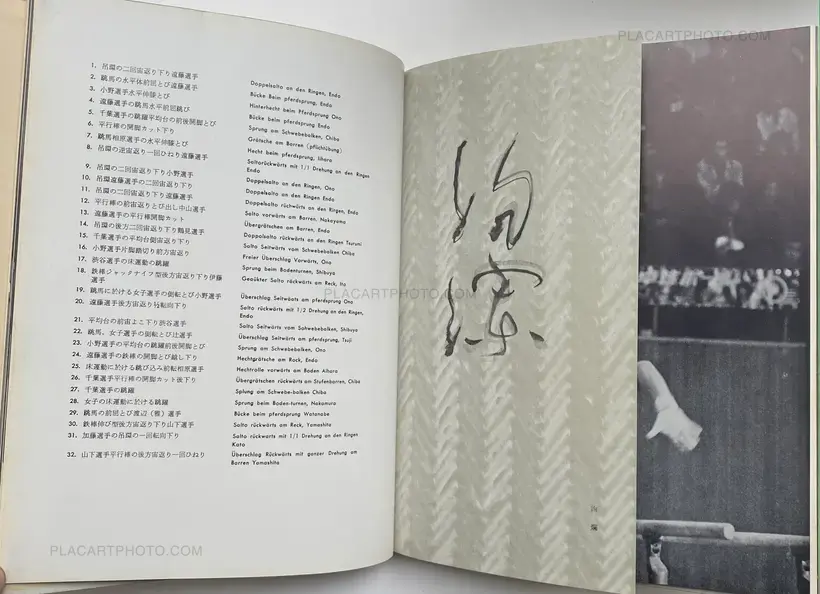 PLACARTPHOTO.COM
1. 吊環の二回宙返り下り遠藤選手
2. 跳馬の水平体前回とび遠藤選手
3. 小野選手水平伸膝とび
4. 遠藤選手の跳馬水平前回跳び
5. 千葉選手の跳躍平均台の前後開脚とび
6. 平行棒の開脚カット下り
7. 跳馬相原選手の水平伸膝とび
8. 吊環の逆宙返り一回ひねり遠藤選手
9. 吊環の二回宙返り下り小野選手
10. 吊環遠藤選手の二回宙返り下り
11. 吊環の二回宙返り下り遠藤選手
12. 平行棒の前宙返りとび出し中山選手
13. 遠藤選手の平行棒開脚カット
14. 吊環の後方二回宙返り下り鶴見選手
15. 千葉選手の平均台側宙返り下り
16. 小野選手片脚踏切り前方宙返り
17. 渋谷選手の床運動の跳躍
18. 鉄棒ジャックナイフ型後方宙返り下り伊藤
選手
19. 跳馬に於ける女子選手の側転とび小野選手
20. 遠藤選手後方宙返り½転向下り
21. 平均台の前宙よこ下り渋谷選手
22. 跳馬、女子選手の側転とび辻選手
23. 小野選手の平均台の跳躍前後開脚とび
24. 遠藤選手の鉄棒の開脚とび越し下り
25. 床運動に於ける跳び込み前転相原選手
26. 千葉選手平行棒の開脚カット後下り
27. 千葉選手の跳躍
28. 女子の床運動に於ける跳躍
29. 跳馬の前回とび渡辺（雅）選手
30. 鉄棒伸び型後方宙返り下り山下選手
31. 加藤選手の吊環の一回転向下り
32. 山下選手平行棒の後方宙返り一回ひねり
Doppelsalto an den Ringen, Endo
Bücke Beim pferdsprung, Endo
Hinterhecht beim Pferdsprung Ono
Bücke beim pferdsprung Endo
Sprung am Schwebebalken, Chiba
Grätsche am Barren (pflichtübung)
Hecht beim pferdsprung, Iihara
Saltorückwärts mit 1/1 Drehung an den Ringen
Endo
Doppelsalto an den Ringen, Ono
Doppelsalto an den Ringen Endo
Doppelsalto rückwärts an den Ringen, Endo
Salto vorwärts am Barren, Nakayama
Übergrätschen am Barren, Endo
Doppolsalto rückwärts an den Ringen Tsuruni
Salto Seitwärts vom Schwebebalken Chiba
Freier Überschlag Vorwärts, Ono
Sprung beim Bodenturnen, Shibuya
Geaükter Salto rückwärts am Reck, Ito
Überschlag Seitwärts am pferdsprung Ono
Salto rückwärts mit 1/2 Drehung an den Ringen,
Endo
Salto Seitwärts vom Sohwebebalken, Shibuya
Überschlag Seitwärts am pferdsprung, Tsuji
Sprung am Schwebebalken, Ono
Hechtgrätsche am Rock, Endo
Hechtrolle vorwärts am Boden Aihara
Übergrätchen rückwärts am Stufenbarren, Chiba
Splung am Schwebe-balken Chiba
Sprung beim Boden-turnen, Nakamura
Bücke beim pferdsprung Watanabe
Salto rückwärts am Reck, Yamashita
Salto rückwärts mit 1/1 Drehung an den Ringen
Kato
Überschlag Rückwärts mit ganzer Drehung am
Barren Yamashita
PLACARTPHOTO.COM
PLACARTPHOTO.COM